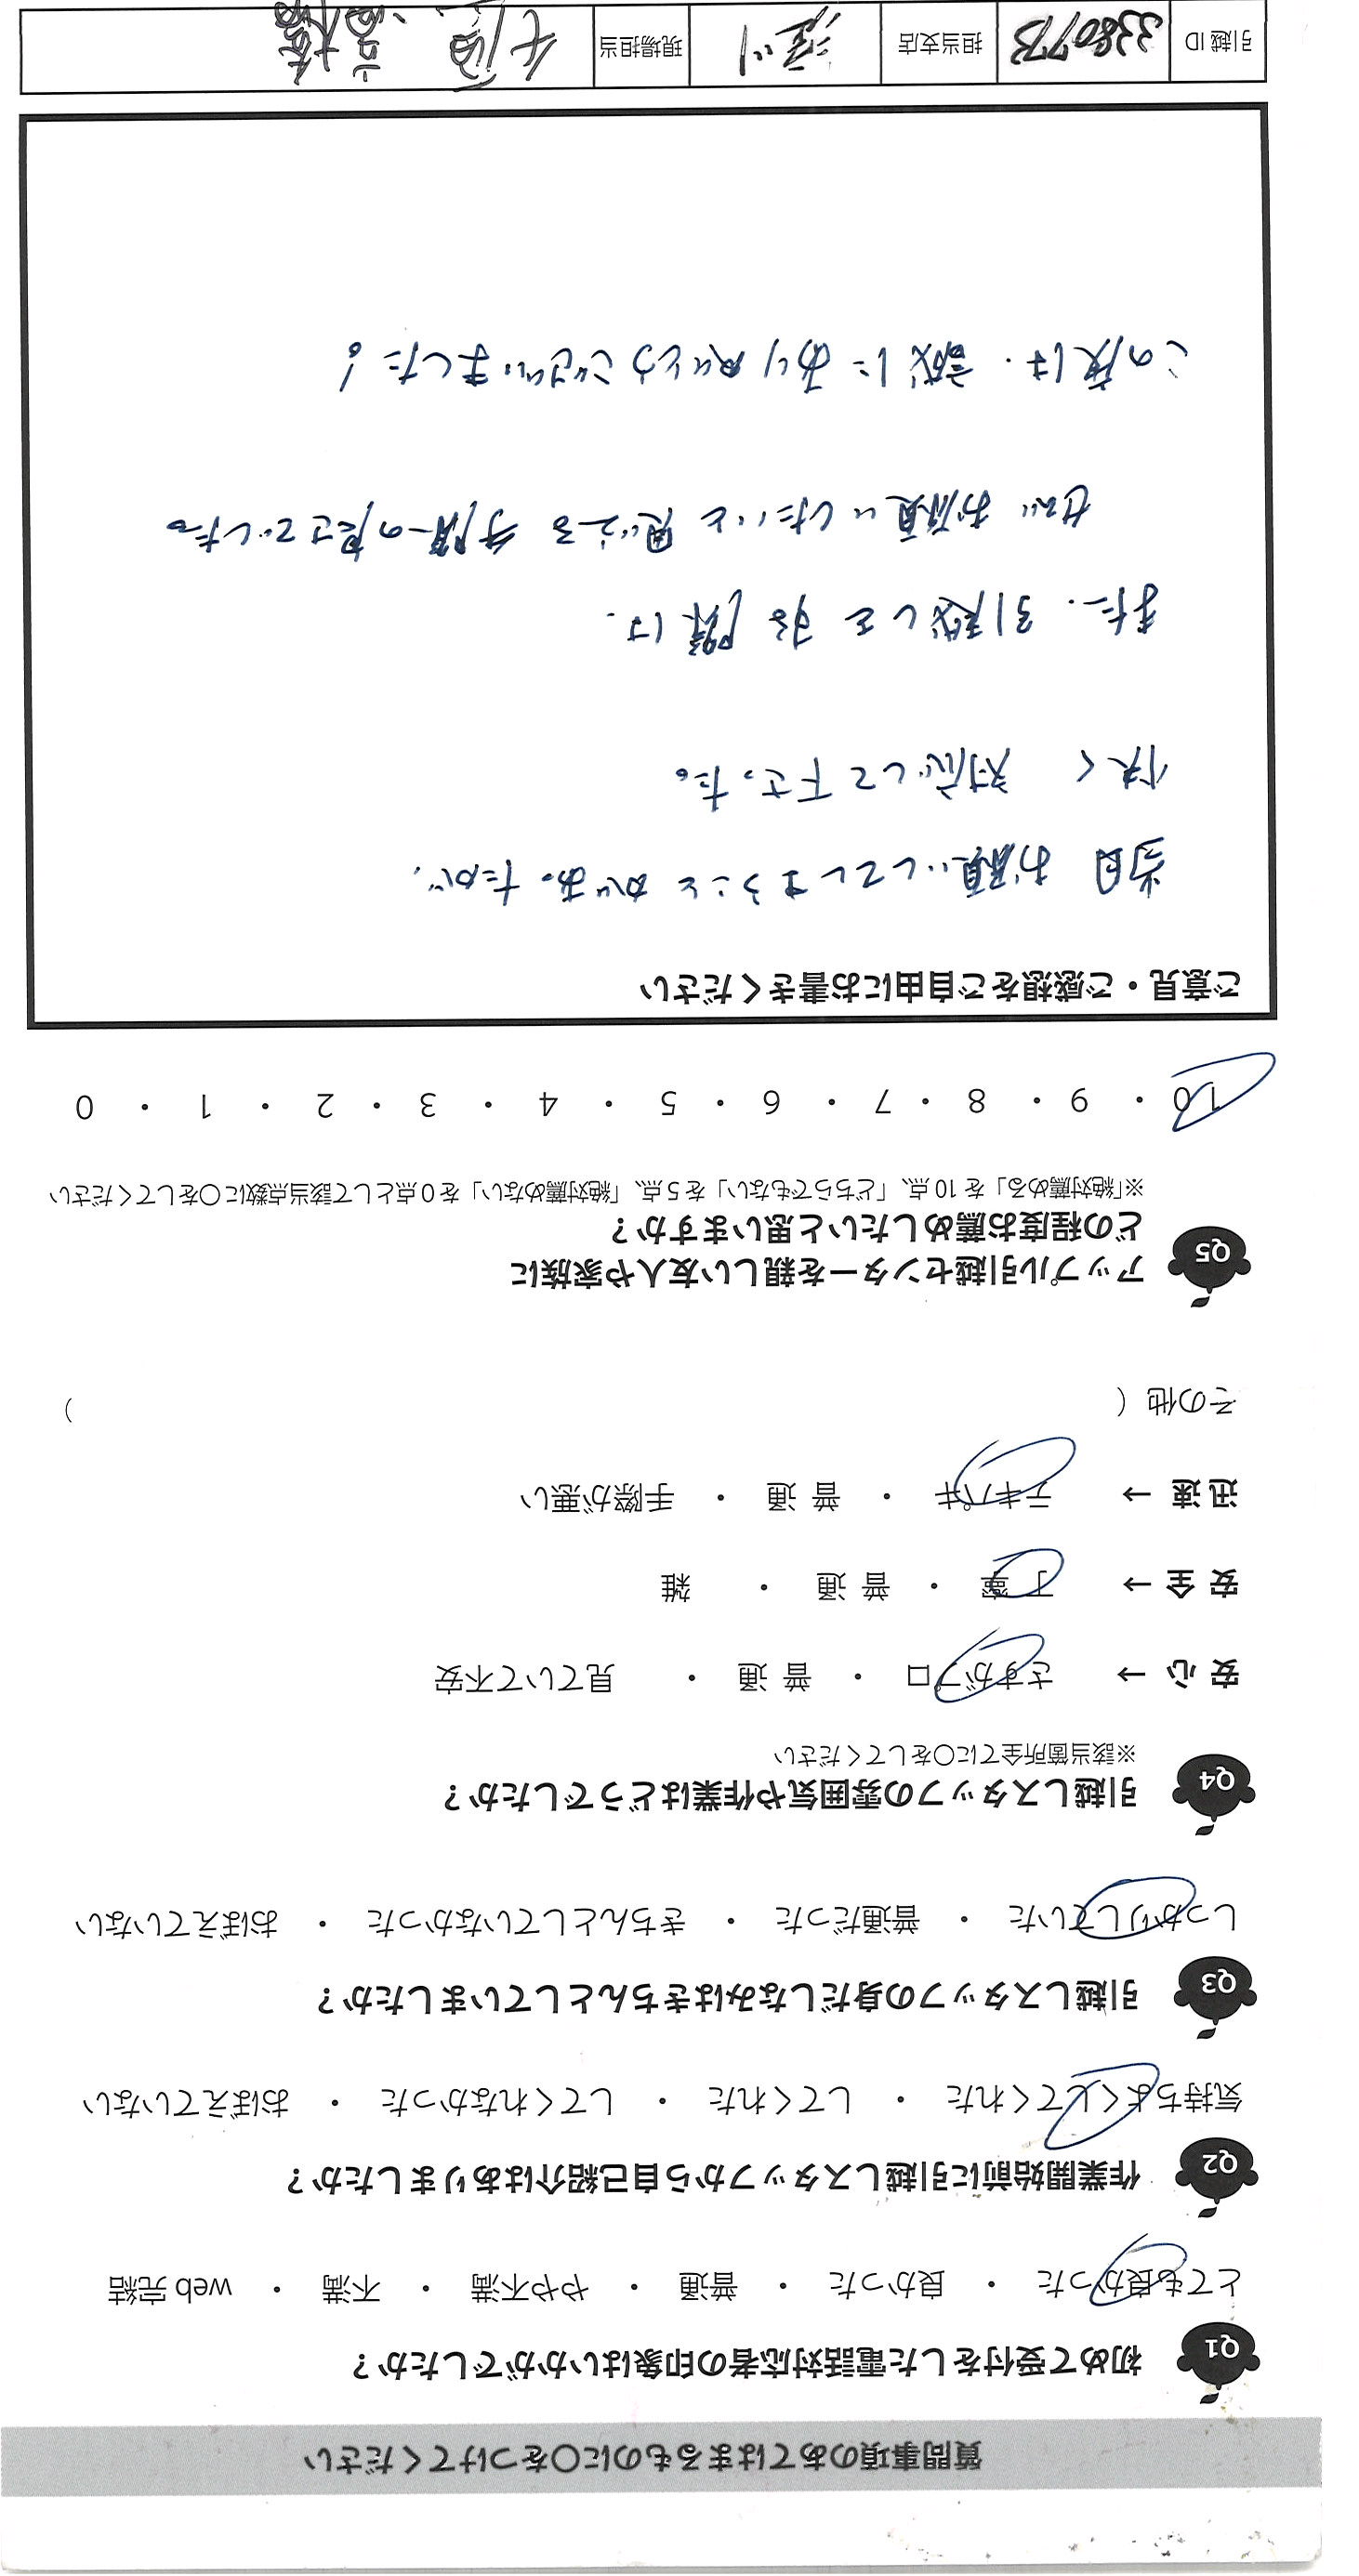 質問事項のあてはまるものに○をつけてください
Q1 初めて受付をした電話対応者の印象はいかがでしたか？
とても良かった ・ 良かった ・ 普通 ・ やや不満 ・ 不満 ・ web 完結
Q2 作業開始前に引越しスタッフから自己紹介はありましたか？
気持ちよくしてくれた ・ してくれた ・ してくれなかった ・ おぼえていない
Q3 引越しスタッフの身だしなみはきちんとしていましたか？
しっかりしていた ・ 普通だった ・ きちんとしていなかった ・ おぼえていない
Q4 引越しスタッフの雰囲気や作業はどうでしたか？
※該当箇所全てに○をしてください
安 心 → さすがプロ ・ 普 通 ・ 見ていて不安
安 全 → 丁 寧 ・ 普 通 ・ 雑
迅 速 → テキパキ ・ 普 通 ・ 手際が悪い
その他（ ）
Q5 アップル引越センターを親しい友人や家族に
どの程度お薦めしたいと思いますか？
※「絶対薦める」を 10 点、「どちらでもない」を 5 点、「絶対薦めない」を 0 点として該当点数に○をしてください
10 ・ 9 ・ 8 ・ 7 ・ 6 ・ 5 ・ 4 ・ 3 ・ 2 ・ 1 ・ 0
ご意見・ご感想をご自由にお書きください
当日 お願いしてしまうことがあったが、
快く 対応して下さった。
また、引越しをする際は、
ぜひお願いしたいと思える手際の良さでした。
この度は、誠にありがとうございました！
引越 ID 3380773 担当支店 現場担当 高橋